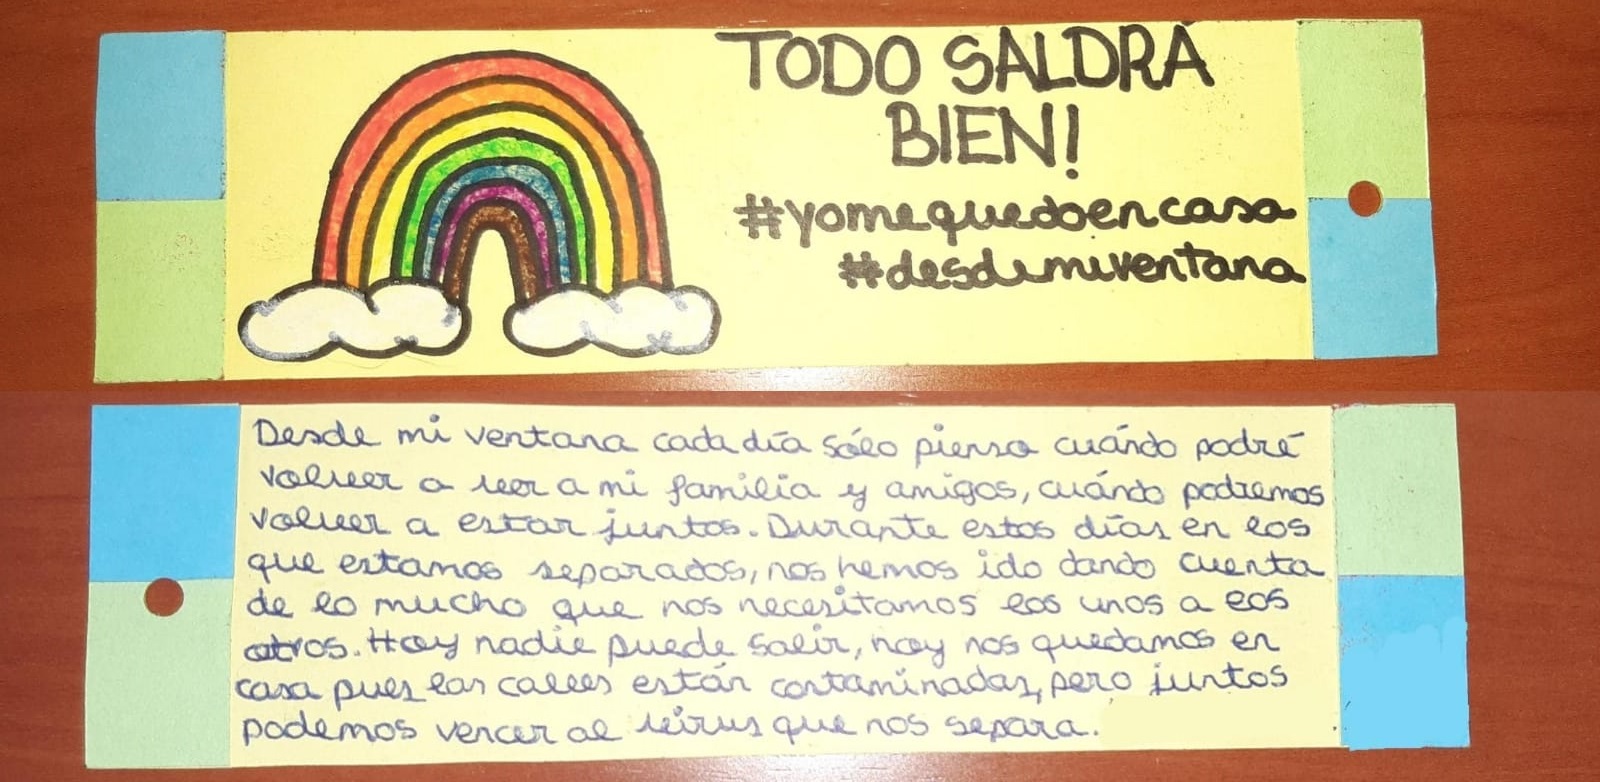 TODO SALDRÁ
BIEN!
#yomequedoencasa
#desdemiventana
Desde mi ventana cada día sólo pienso cuándo podré
volver a ver a mi familia y amigos, cuándo podremos
volver a estar juntos. Durante estos días en los
que estamos separados, nos hemos ido dando cuenta
de lo mucho que nos necesitamos los unos a los
otros. Hoy nadie puede salir, hoy nos quedamos en
casa pues las calles están contaminadas, pero juntos
podemos vencer al virus que nos separa.